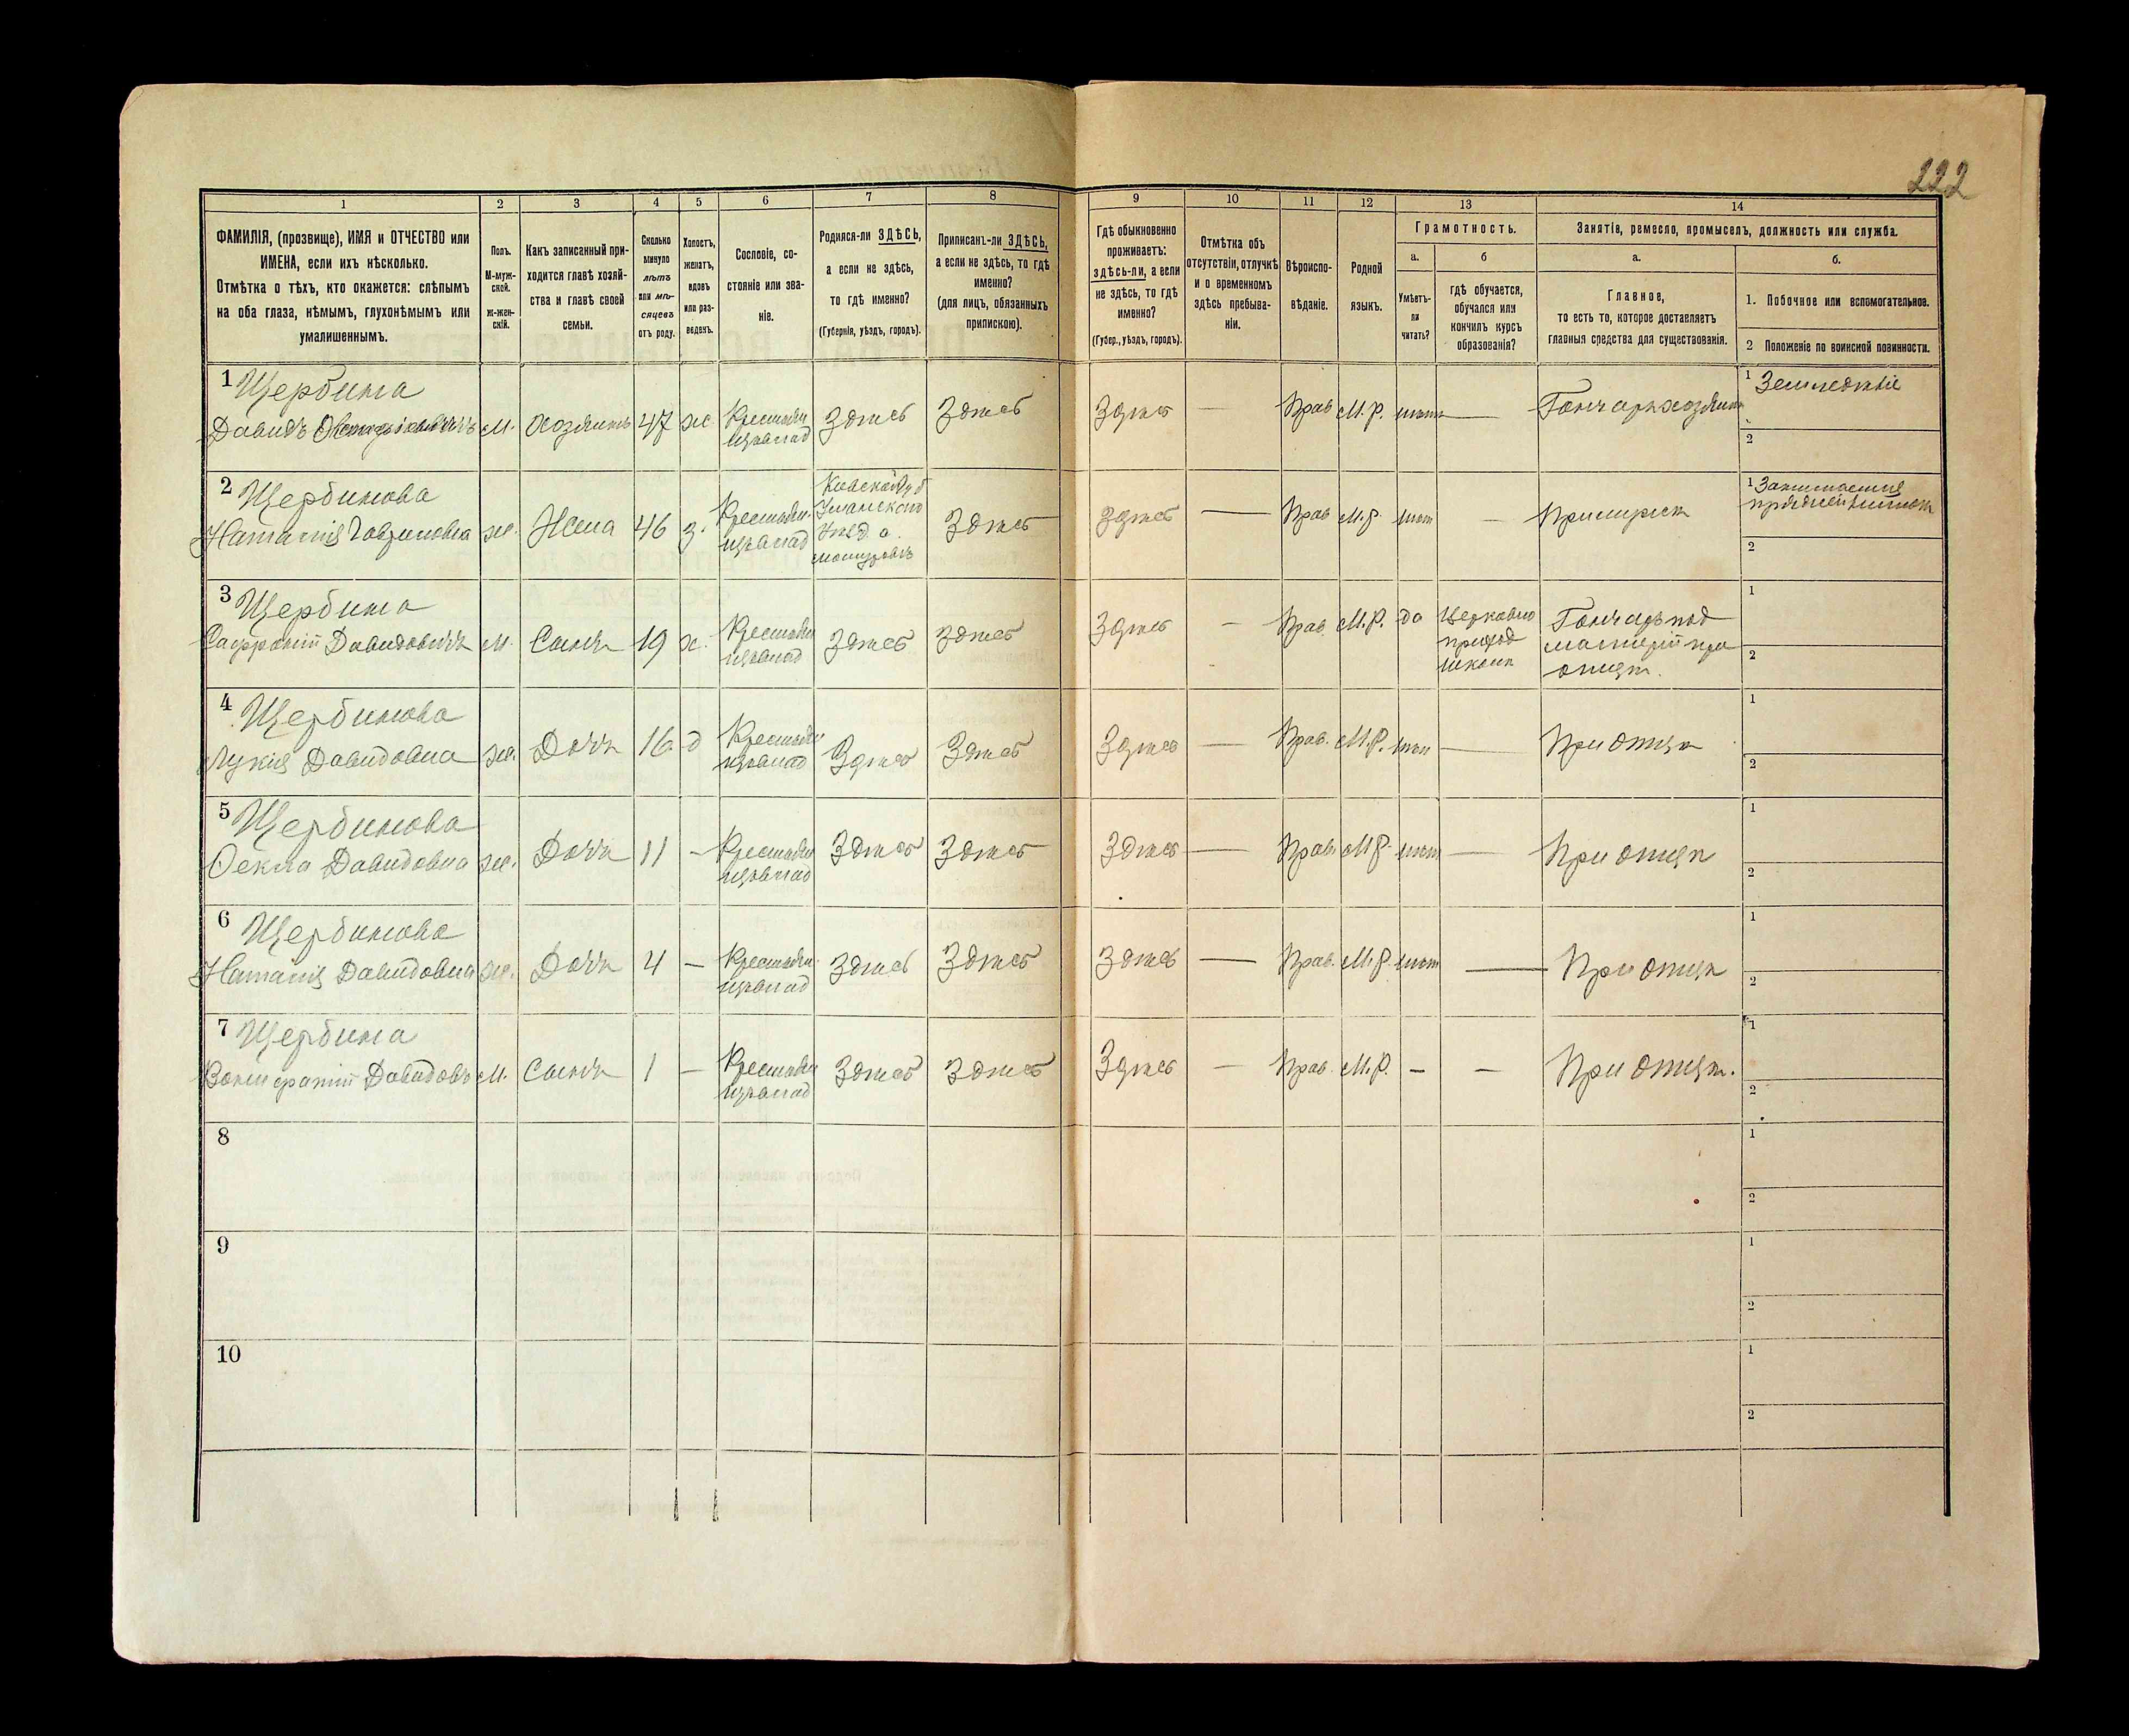 222
1 2 3 4 5 6 7 8 9 10 11 12 13 14
ФАМИЛІЯ, (прозвище), ИМЯ и ОТЧЕСТВО или
ИМЕНА, если ихъ нѣсколько.
Отмѣтка о тѣхъ, кто окажется: слѣпымъ
на оба глаза, нѣмымъ, глухонѣмымъ или
умалишеннымъ.
Полъ.
М-муж-
ской.
Ж-жен-
скій.
Какъ записанный при-
ходится главѣ хозяй-
ства и главѣ своей
семьи.
Сколько
минуло
лѣтъ
или мѣ-
сяцевъ
отъ роду.
Холостъ,
женатъ,
вдовъ
или раз-
веденъ.
Сословіе, со-
стояніе или зва-
ніе.
Родился-ли ЗДѢСЬ,
а если не здѣсь,
то гдѣ именно?
(Губернія, уѣздъ, городъ).
Приписанъ-ли ЗДѢСЬ,
а если не здѣсь, то гдѣ
именно?
(для лицъ, обязанныхъ
припискою).
Гдѣ обыкновенно
проживаетъ:
здѣсь-ли, а если
не здѣсь, то гдѣ
именно?
(Губер., уѣздъ, городъ).
Отмѣтка объ
отсутствіи, отлучкѣ
и о временномъ
здѣсь пребыва-
ніи.
Вѣроиспо-
вѣданіе.
Родной
языкъ.
Грамотность.
а.
Умѣетъ-
ли
читать?
б
гдѣ обучается,
обучался или
кончилъ курсъ
образованія?
Занятіе, ремесло, промыселъ, должность или служба.
а.
Главное,
то есть то, которое доставляетъ
главныя средства для существованія.
б.
1. Побочное или вспомогательное.
2 Положеніе по воинской повинности.
1 Щербина
Давидъ М. Хозяинъ 47 ж. Крестьян
изъ влад Здѣсь Здѣсь Здѣсь — Прав М.Р. нѣтъ — Гончаръ хозяинъ
1 Земледѣліе
2
2 Щербинова
Наталія Гавриловна ж. Жена 46 з. Крестьян.
изъ влад
Кіевской губ
Уманского
Уѣзд с.
Здѣсь Здѣсь — Прав М.Р. нѣт — При мужѣ
1 Занимается
пряденіем нитокъ
2
3 Щербина
Софроній Давидовичъ М. Сынъ 19 х. Крестьян
изъ влад Здѣсь Здѣсь Здѣсь — Прав. М.Р. да
Церковно
приход
школѣ
Гончаръ под
мастерій при
отцѣ.
1
2
4 Щербинова
Лукія Давидовна ж. Дочь 16 д Крестьян
изъ влад Здѣсь Здѣсь Здѣсь — Прав. М.Р. нѣт — При отцѣ
1
2
5 Щербинова
Ѳекла Давидовна ж. Дочь 11 — Крестьян
изъ влад Здѣсь Здѣсь Здѣсь — Прав М.Р. нѣт — При отцѣ
1
2
6 Щербинова
Наталія Давидовна ж. Дочь 4 — Крестьян.
изъ влад Здѣсь Здѣсь Здѣсь — Прав. М.Р. нѣт — При отцѣ
1
2
7 Щербина
Давидовъ М. Сынъ 1 — Крестьян
изъ влад Здѣсь Здѣсь Здѣсь — Прав. М.Р. — — При отцѣ.
1
2
8
1
2
9
1
2
10
1
2